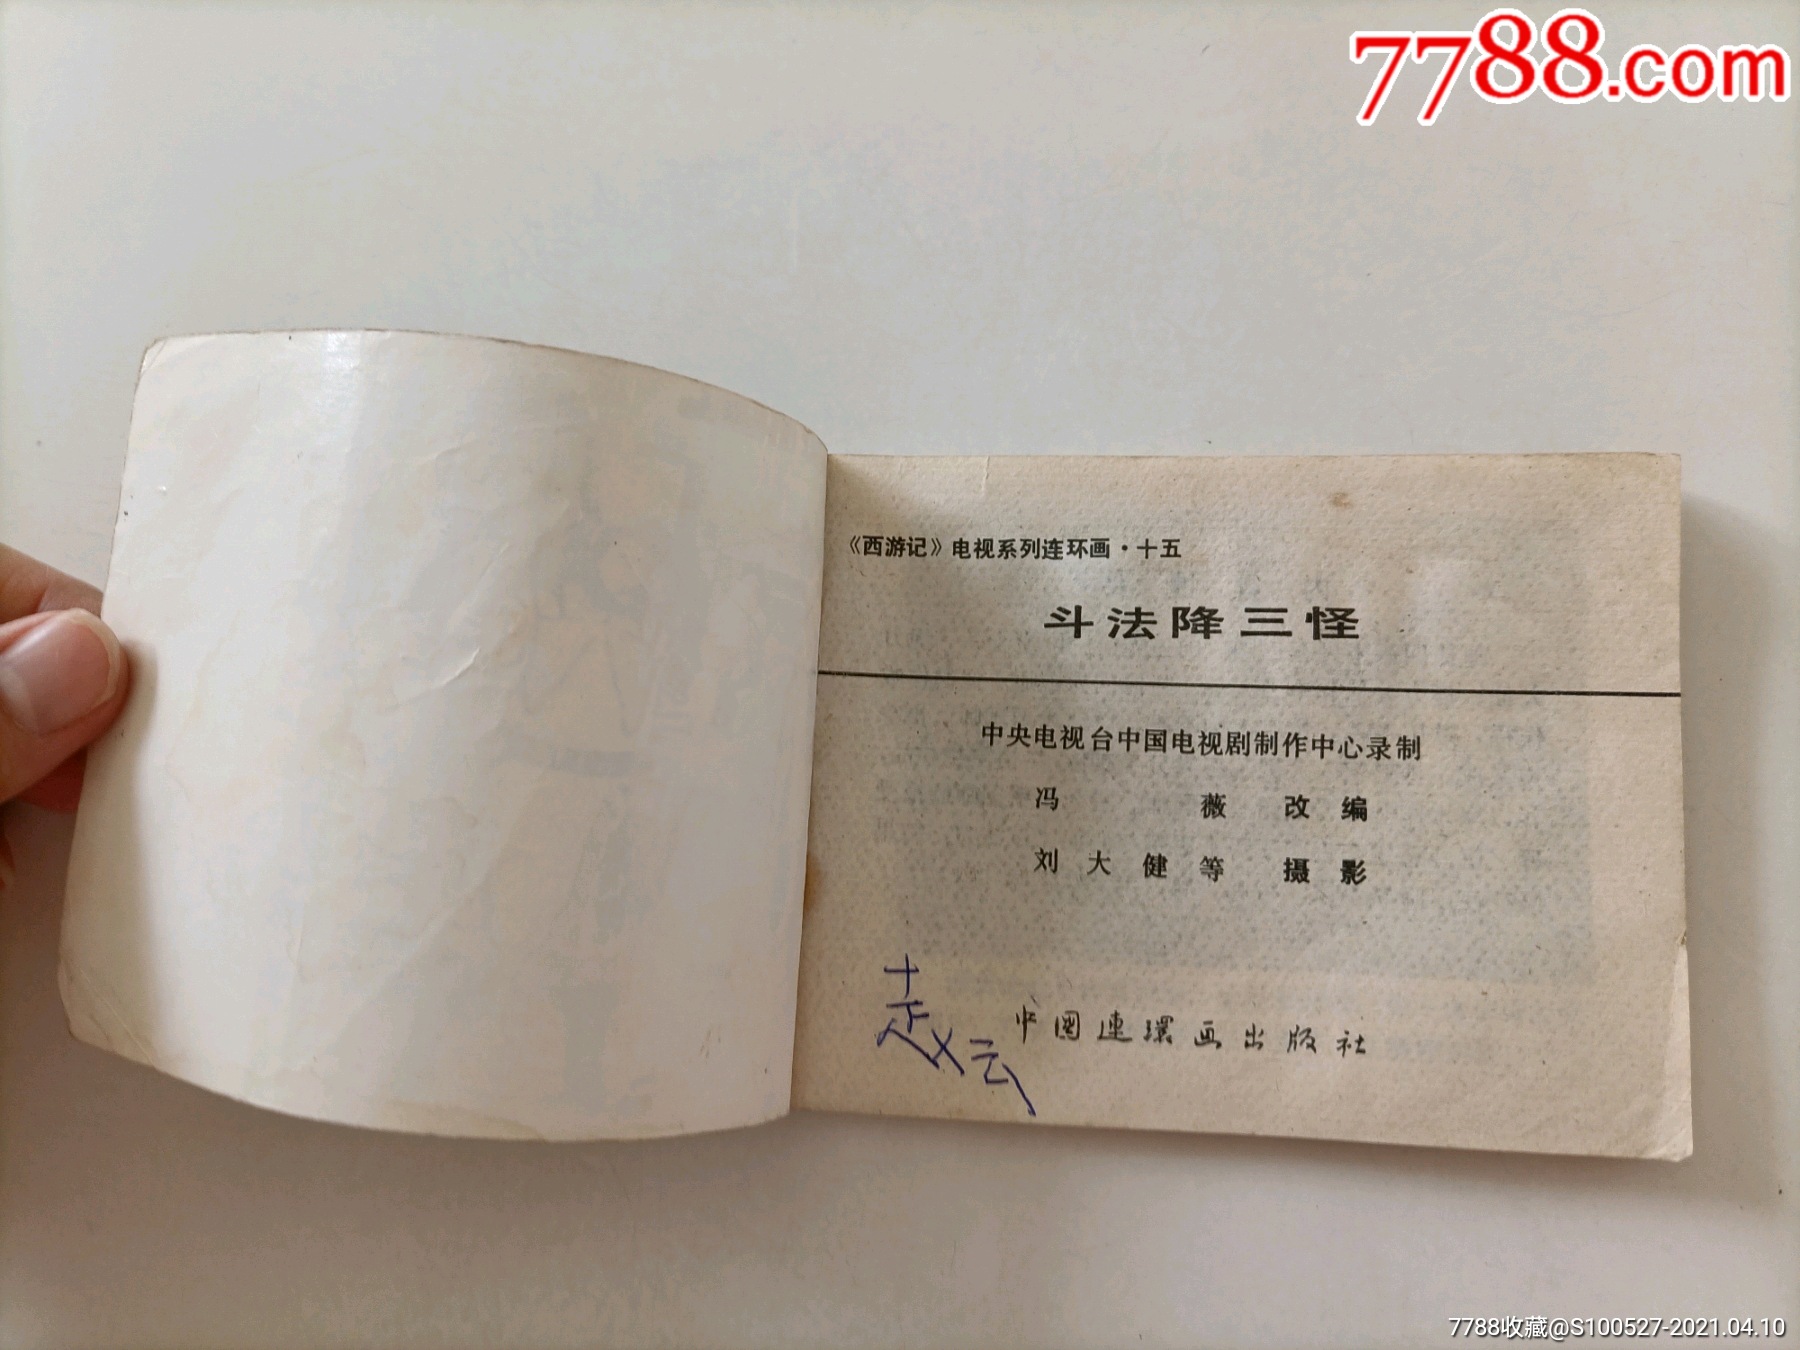 7788.com
《西游记》电视系列连环画·十五
斗法降三怪
中央电视台中国电视剧制作中心录制
冯 薇 改 编
刘 大 健 等 摄 影
赵云
中国連環画出版社
7788收藏@S100527-2021.04.10